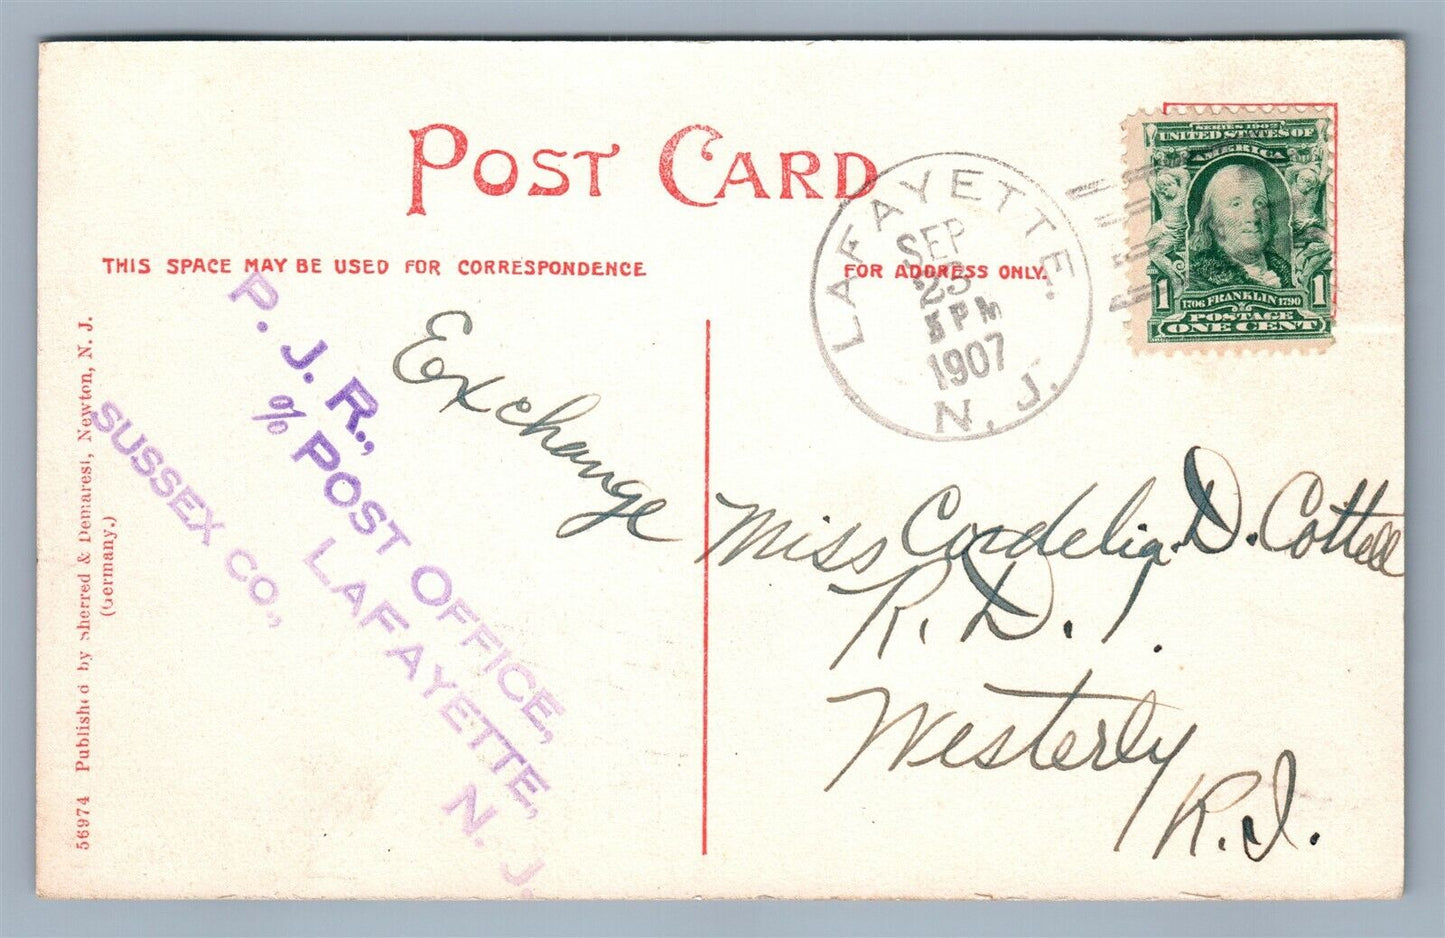 POST CARD
THIS SPACE MAY BE USED FOR CORRESPONDENCE
FOR ADDRESS ONLY.
LAFAYETTE.
SEP
23
PM
1907
N. J.
SERIES 1902
UNITED STATES OF
AMERICA
1 1706 FRANKLIN 1790 1
POSTAGE
ONE CENT
Exchange
P. J. R.,
% POST OFFICE,
LAFAYETTE,
SUSSEX CO., N. J.
Miss Cordelia. D. Cottrell
R. D. 1.
Westerly
R.I.
56974 Published by Sherred & Demarest, Newton, N. J.
(Germany.)